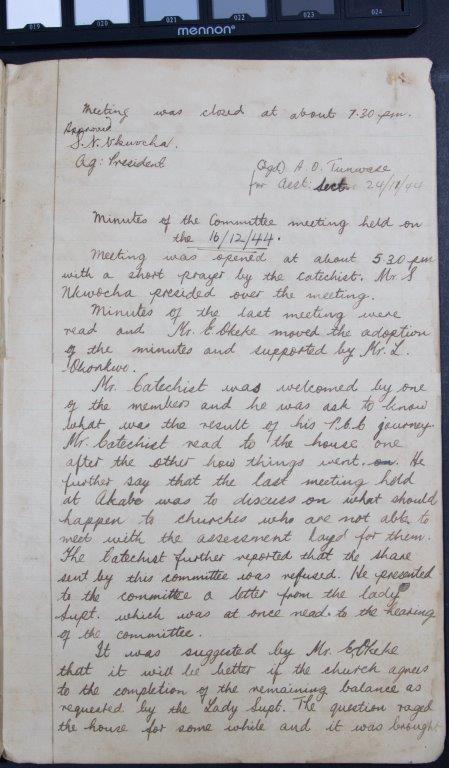 019 020 021 022 023 024
mennon
Meeting was closed at about 7.30 pm.
Approved
S. N. Nkwocha.
Ag: President
(Sgd) A. O. Tunwase
for Asst: Sect 24/11/44
Minutes of the Committee meeting held on
the 16/12/44.
Meeting was opened at about 5.30 pm
with a short prayer by the Catechist. Mr. S
Nkwocha presided over the meeting.
Minutes of the last meeting were
read and Mr. E. Okeke moved the adoption
of the minutes and supported by Mr. L.
Okonkwo.
Mr. Catechist was welcomed by one
of the members and he was ask to know
what was the result of his journey.
Mr. Catechist read to the house one
after the other how things went. on. He
further say that the last meeting held
at Akabo was to discuss on what should
happen to churches who are not able to
meet with the assessment layd for them.
The Catechist further reported that the share
sent by this committee was refused. He presented
to the committee a letter from the lady
Supt. which was at once read to the hearing
of the committee.
It was suggested by Mr. E. Okeke
that it will be better if the church agrees
to the completion of the remaining balance as
requested by the Lady Supt. The question raged
the house for some while and it was brought